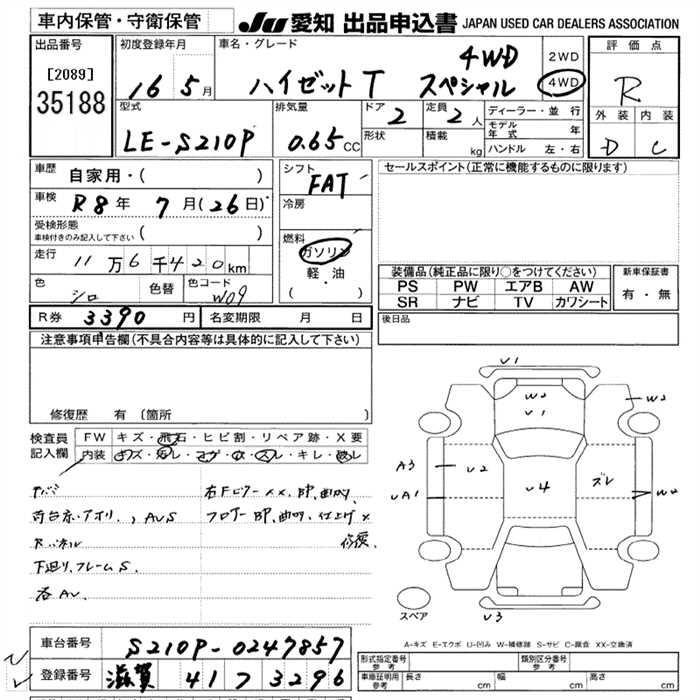 車内保管・守衛保管
JU 愛知 出品申込書 JAPAN USED CAR DEALERS ASSOCIATION
出品番号
[2089]
35188
初度登録年月
16 5月
車名・グレード
ハイゼットT スペシャル 4WD
2WD
4WD
評価点
R
外装 内装
D C
型式
LE-S210P
排気量
0.65 CC
ドア
2
形状
定員
2人
積載
kg
ディーラー・並行
モデル年式 年
ハンドル 左・右
車歴
自家用・( )
車検
R8年 7月(26日)
受検形態
車検付きのみ記入して下さい ( )
走行
11万6千420km
色
シロ
色替
色コード
W09
シフト
FAT
冷房
燃料
ガソリン
軽・油
( ・ )
セールスポイント(正常に機能するものに限ります)
装備品(純正品に限り○をつけてください)
PS PW エアB AW
SR ナビ TV カワシート
新車保証書
有・無
R券 3390円
名変期限 月 日
後日品
注意事項申告欄(不具合内容等は具体的に記入して下さい)
修復歴 有 (箇所
検査員
記入欄
FW キズ・飛石・ヒビ割・リペア跡・X要
内装 キズ・汚レ・コゲ・穴・スレ・キレ・破レ
荷台ホ・アオリ、AUS
下廻り、フレームS.
各AU.
BP、曲り
フロアーBP、曲り、仕上げ×
修復
V1
W2
V1
W2
A3
UA1
U2
U4
ズレ
W2
V3
スペア
A-キズ E-エクボ U-凹み W-補修跡 S-サビ C-腐食 XX-交換済
車台番号 S210P-0247857
登録番号 滋賀 41 フ 3296
形式指定番号 参考
類別区分番号 参考
車庫証明用 参考
長さ cm 幅 cm 高さ cm